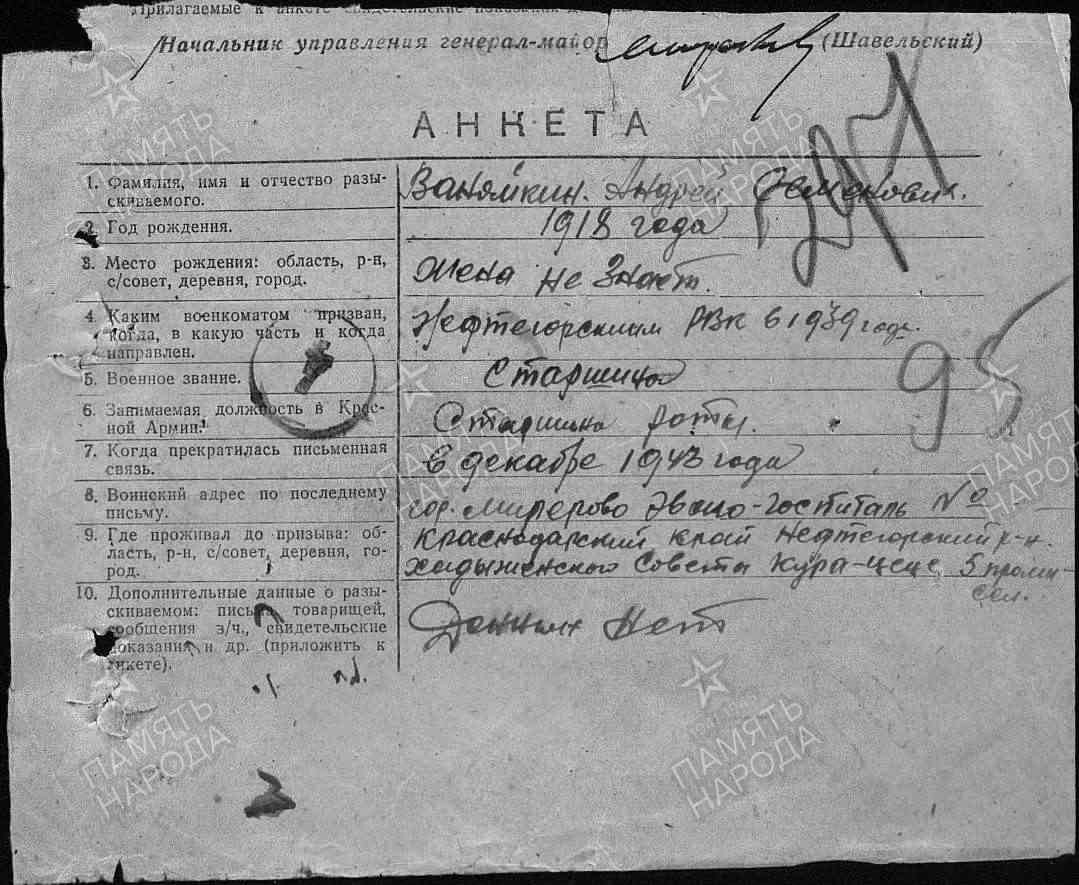 Прилагаемые к анкете свидетельские показания
Начальник управления генерал-майор (Шавельский)
АНКЕТА
1. Фамилия, имя и отчество разы-
скиваемого.
Ваняйкин. Андрей Семенович.
2. Год рождения.
1918 года
3. Место рождения: область, р-н,
с/совет, деревня, город.
Жена не знает.
4. Каким военкоматом призван,
когда, в какую часть и когда
направлен.
Нефтегорским РВК в 1939 годе.
5. Военное звание.
Старшина
6. Занимаемая должность в Крас-
ной Армии.
Старшина роты.
7. Когда прекратилась письменная
связь.
в декабре 1943 года
8. Воинский адрес по последнему
письму.
гор. Миллерово Эвако-госпиталь №
9. Где проживал до призыва: об-
ласть, р-н, с/совет, деревня, го-
род.
Краснодарский край Нефтегорский р-н.
Хадыженского Совета Кура-цеце, 5 промы-
сел.
10. Дополнительные данные о разы-
скиваемом: письма товарищей,
сообщения з/ч., свидетельские
показания и др. (приложить к
анкете).
Данных Нет
95
ПАМЯТЬ
НАРОДА
ПАМЯТЬ
НАРОДА
ПАМЯТЬ
НАРОДА
ПАМЯТЬ
НАРОДА
ПАМЯТЬ
НАРОДА
ПАМЯТЬ
НАРОДА